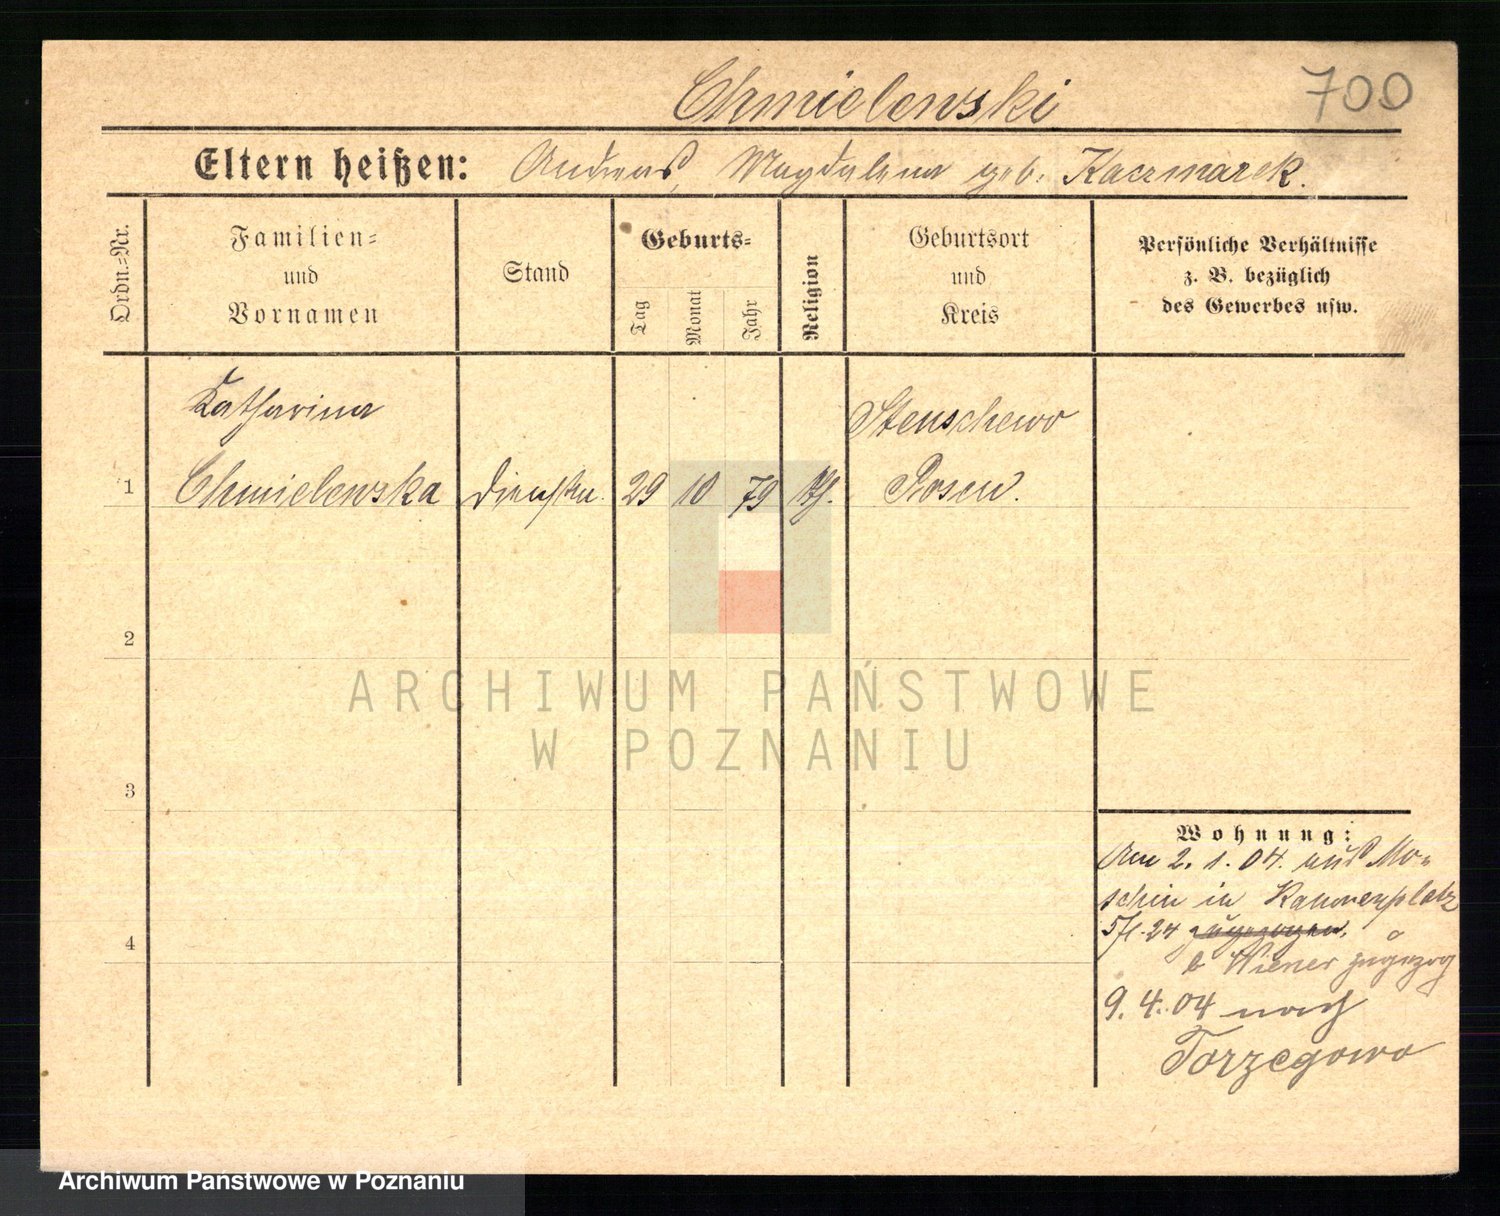 Chmielewski
700
Eltern heißen: Andreas, Magdalena geb. Kaczmarek.
Ordn.-Nr.
Familien-
und
Vornamen
Stand
Geburts-
Tag
Monat
Jahr
Religion
Geburtsort
und
Kreis
Persönliche Verhältnisse
z. B. bezüglich
des Gewerbes usw.
Katharina
Stenschewo
1 Chmielewska Dienstm. 29 10 79 Posen.
2
ARCHIWUM PAŃSTWOWE
W POZNANIU
3
Wohnung:
Am 2. 1. 04. aus Mo-
schin in Kanonenplatz
zugezogen.
b Wiener zugezog
9. 4. 04 nach
4
Archiwum Państwowe w Poznaniu